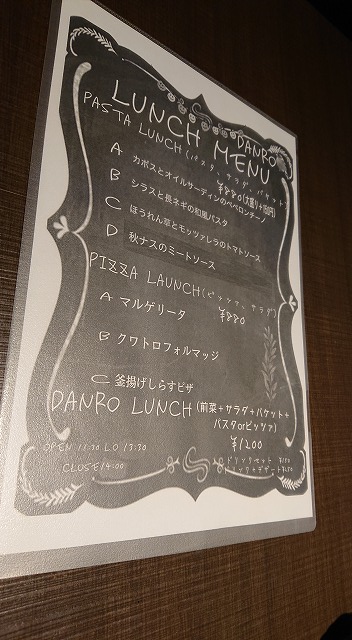 DANRO
LUNCH MENU
PASTA LUNCH (パスタ、サラダ、バケット)
¥880(大盛り+150円)
A カボスとオイルサーディンのペペロンチーノ
B シラスと長ネギの和風パスタ
C ほうれん草とモッツァレラのトマトソース
D 秋ナスのミートソース
PIZZA LAUNCH (ピッツァ、サラダ)
¥880
A マルゲリータ
B クワトロフォルマッジ
C 釜揚げしらすピザ
DANRO LUNCH (前菜+サラダ+バケット+
パスタorピッツァ)
¥1200
OPEN 11:30 LO 13:30
CLOSE 14:00
ドリンクセット
ドリンク+デザート